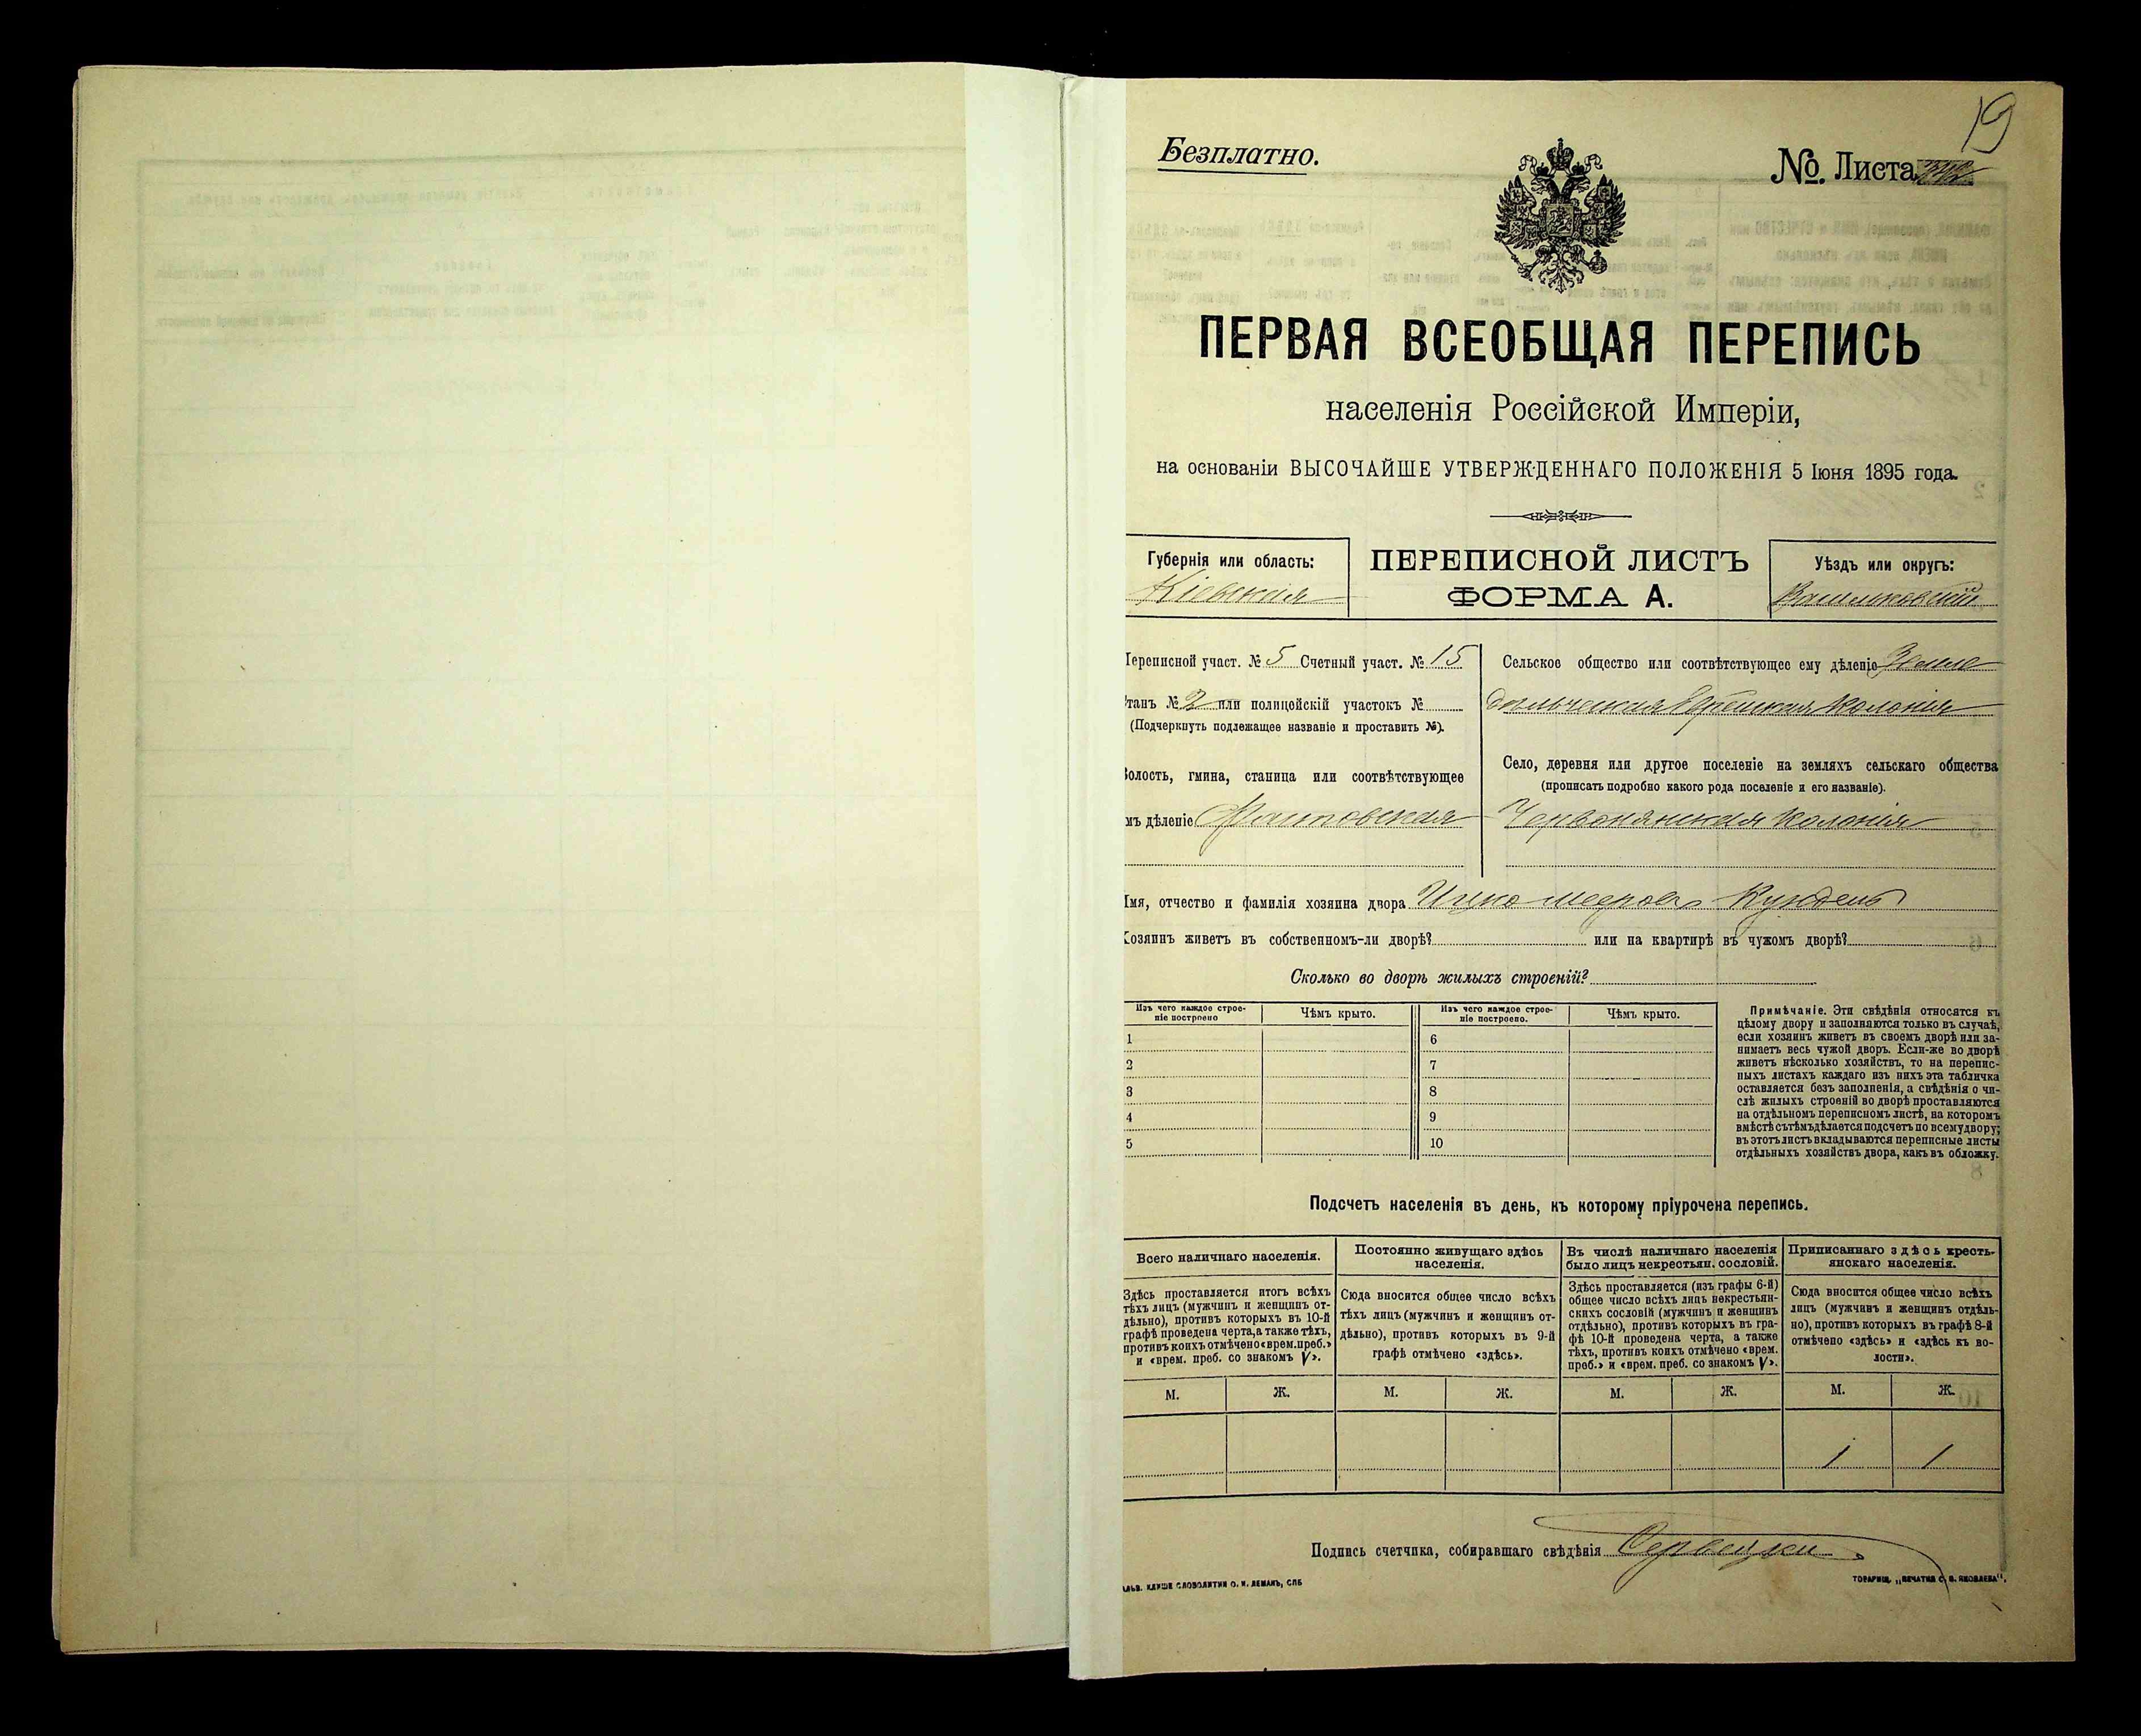 19
Безплатно.
№. Листа
ПЕРВАЯ ВСЕОБЩАЯ ПЕРЕПИСЬ
населенія Россійской Имперіи,
на основаніи ВЫСОЧАЙШЕ УТВЕРЖДЕННАГО ПОЛОЖЕНІЯ 5 Іюня 1895 года.
Губернія или область:
Кіевская
ПЕРЕПИСНОЙ ЛИСТЪ
ФОРМА А.
Уѣздъ или округъ:
Васильковскій
Переписной участ. № 5 Счетный участ. № 15
Станъ № 2 или полицейскій участокъ №
(Подчеркнуть подлежащее названіе и проставить №).
Волость, гмина, станица или соотвѣтствующее
мъ дѣленіе Фастовская
Сельское общество или соотвѣтствующее ему дѣленіе Земле
дѣльческая Еврейская Колонія
Село, деревня или другое поселеніе на земляхъ сельскаго общества
(прописать подробно какого рода поселеніе и его названіе).
Червонянская Колонія
Имя, отчество и фамилія хозяина двора Ицко Мееровъ
Хозяинъ живетъ въ собственномъ-ли дворѣ? или на квартирѣ въ чужомъ дворѣ?
Сколько во дворѣ жилыхъ строеній?
Изъ чего каждое строе-
ніе построено
Чѣмъ крыто.
Изъ чего каждое строе-
ніе построено.
Чѣмъ крыто.
1 6
2 7
3 8
4 9
5 10
Примѣчаніе. Эти свѣдѣнія относятся къ
цѣлому двору и заполняются только въ случаѣ,
если хозяинъ живетъ въ своемъ дворѣ или за-
нимаетъ весь чужой дворъ. Если-же во дворѣ
живетъ нѣсколько хозяйствъ, то на перепис-
ныхъ листахъ каждаго изъ нихъ эта табличка
оставляется безъ заполненія, а свѣдѣнія о чи-
слѣ жилыхъ строеній во дворѣ проставляются
на отдѣльномъ переписномъ листѣ, на которомъ
вмѣстѣ съ тѣмъ дѣлается подсчетъ по всему двору;
въ этотъ листъ вкладываются переписные листы
отдѣльныхъ хозяйствъ двора, какъ въ обложку.
Подсчетъ населенія въ день, къ которому пріурочена перепись.
Всего наличнаго населенія.
Здѣсь проставляется итогъ всѣхъ
тѣхъ лицъ (мужчинъ и женщинъ от-
дѣльно), противъ которыхъ въ 10-й
графѣ проведена черта, а также тѣхъ,
противъ коихъ отмѣчено «врем. преб.»
и «врем. преб. со знакомъ V».
Постоянно живущаго здѣсь
населенія.
Сюда вносится общее число всѣхъ
тѣхъ лицъ (мужчинъ и женщинъ от-
дѣльно), противъ которыхъ въ 9-й
графѣ отмѣчено «здѣсь».
Въ числѣ наличнаго населенія
было лицъ некрестьян. сословій.
Здѣсь проставляется (изъ графы 6-й)
общее число всѣхъ лицъ некрестьян-
скихъ сословій (мужчинъ и женщинъ
отдѣльно), противъ которыхъ въ гра-
фѣ 10-й проведена черта, а также
тѣхъ, противъ коихъ отмѣчено «врем.
преб.» и «врем. преб. со знакомъ V».
Приписаннаго здѣсь кресть-
янскаго населенія.
Сюда вносится общее число всѣхъ
лицъ (мужчинъ и женщинъ отдѣль-
но), противъ которыхъ въ графѣ 8-й
отмѣчено «здѣсь» и «здѣсь къ во-
лости».
М. Ж. М. Ж. М. Ж. М. Ж.
1 1
Подпись счетчика, собиравшаго свѣдѣнія
КЛИШЕ СЛОВОЛИТНИ О. И. ЛЕМАНЪ, СПБ
ТОВАРИЩ. „ПЕЧАТНЯ С. П. ЯКОВЛЕВА".